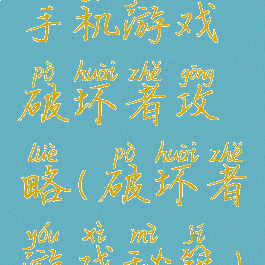 手机游戏
pò huài zhě gōng
破坏者攻
lüè pò huài zhě
略(破坏者
yóu xì mì jí
游戏秘籍)